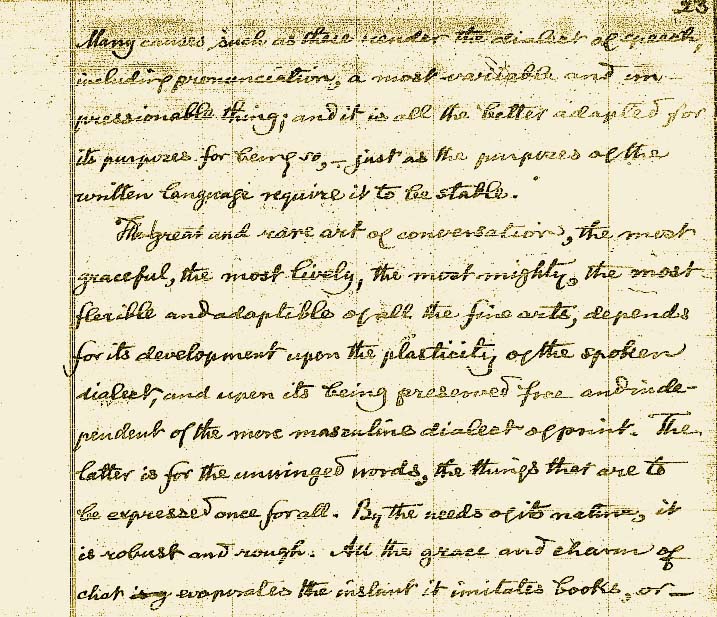 23
Many causes such as these render the dialect of speech,
including pronunciation, a most variable and im-
pressionable thing; and it is all the better adapted for
its purposes for being so, – just as the purposes of the
written language require it to be stable.
The great and rare art of conversation, the most
graceful, the most lively, the most mighty, the most
flexible and adaptible of all the fine arts, depends
for its development upon the plasticity of the spoken
dialect, and upon its being preserved free and inde-
pendent of the more masculine dialect of print. The
latter is for the unwinged words, the things that are to
be expressed once for all. By the needs of its nature, it
is robust and rough. All the grace and charm of
chat evaporates the instant it imitates books, or –